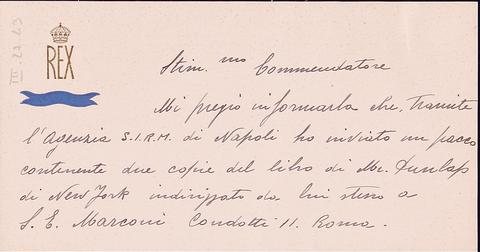 REX
III.27.43
Stim.mo Commendatore
Mi pregio informarla che, tramite
l'Agenzia S.I.R.M. di Napoli ho inviato un pacco
contenente due copie del libro di Mr. Dunlap
di New York indirizzato da lui stesso a
S. E. Marconi Condotti 11. Roma.